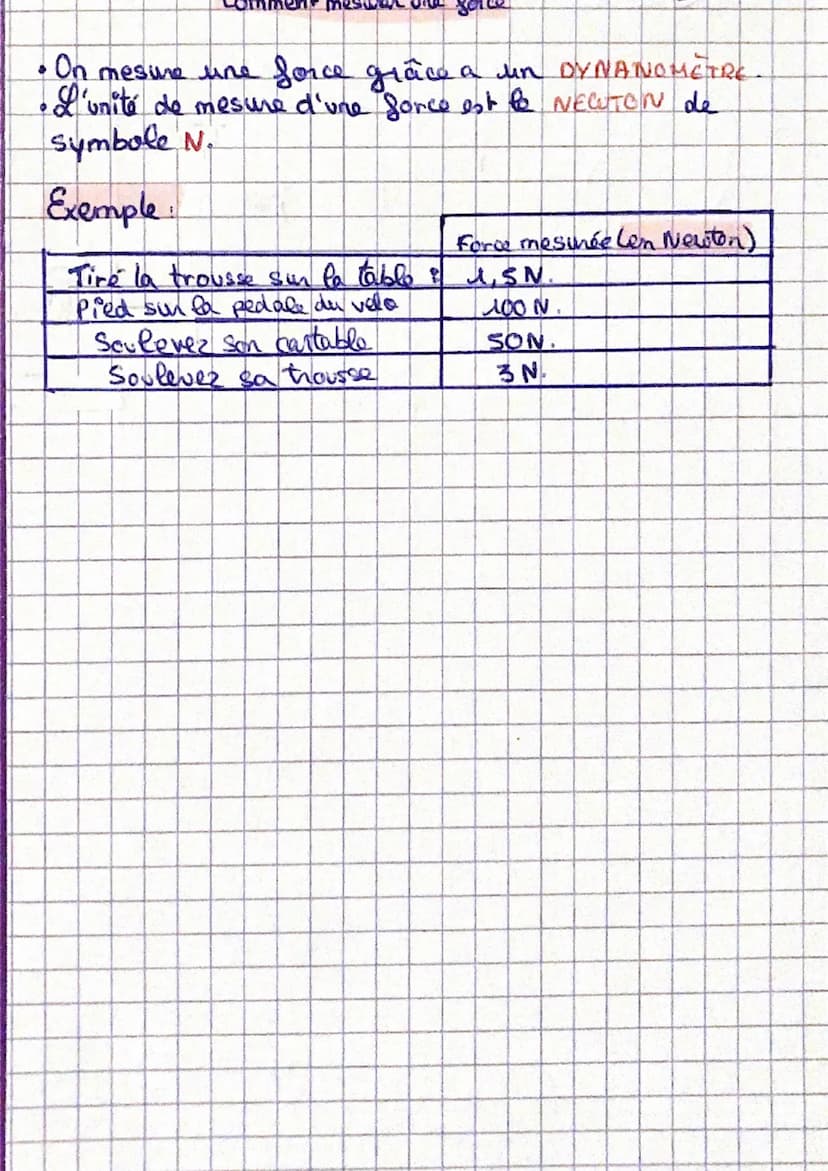 Comment mesurer une force
• On mesure une force grâce a un DYNANOMÈTRE.
• L'unité de mesure d'une force est le NEWTON de
symbole N.
Exemple :
Force mesurée (en Newton)
Tiré la trousse sur la table : 1,5 N.
Pied sur la pedale du velo 100 N.
Soulevez son cartable 50N.
Soulevez sa trousse 3 N.